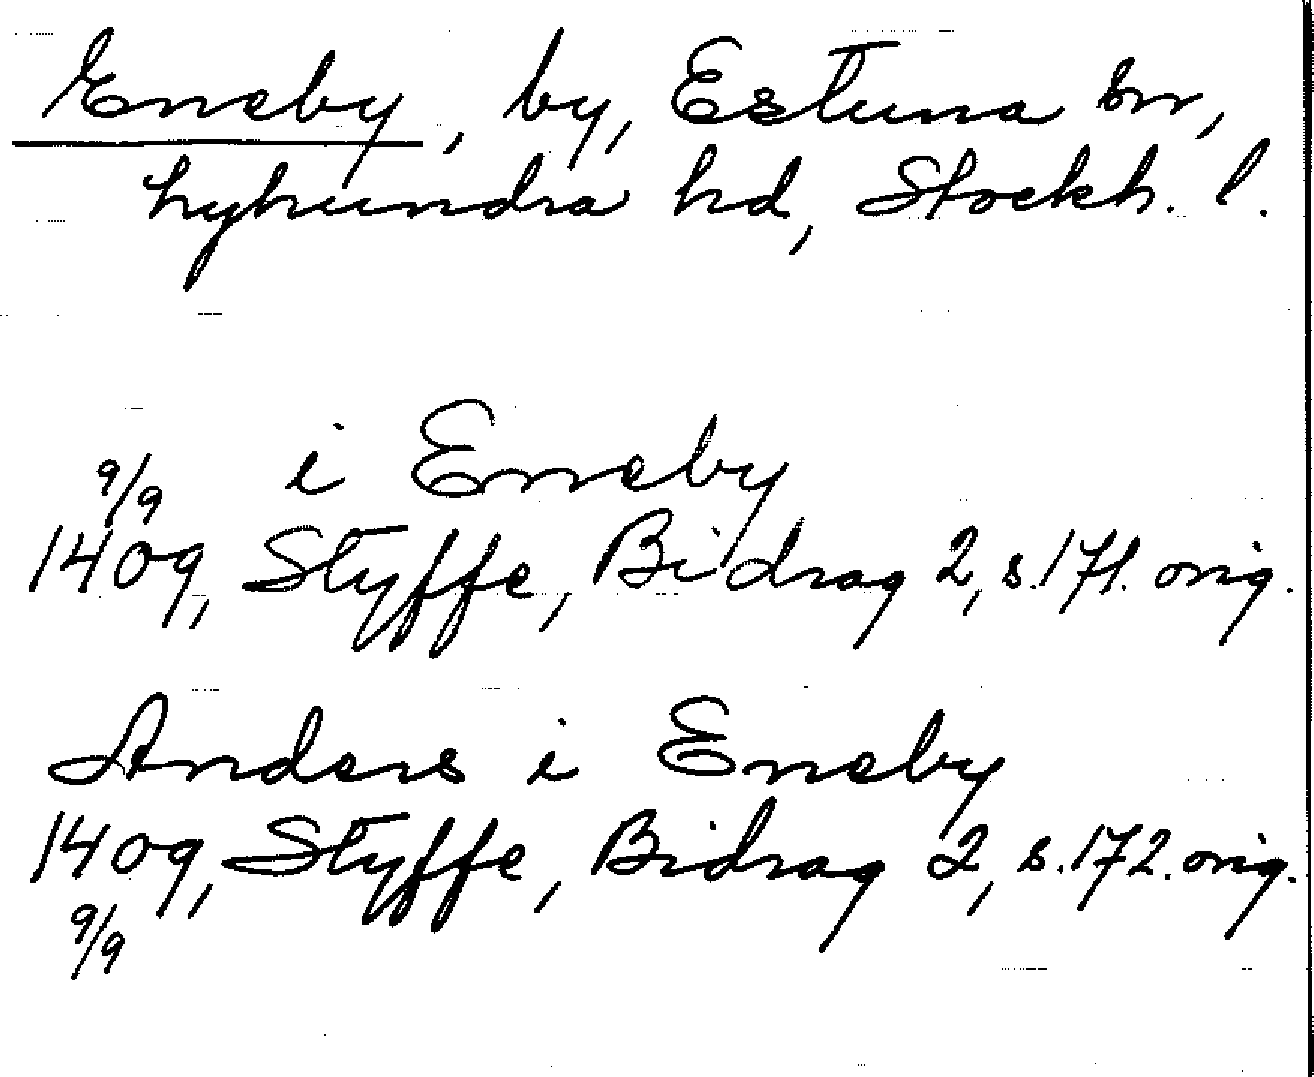 Eneby, by, Estuna sn,
Lyhundra hd, Stockh. l.
9/9 i Eneby
1409, Styffe, Bidrag 2, s. 171. orig.
Anders i Eneby
1409, Styffe, Bidrag 2, s. 172. orig.
9/9